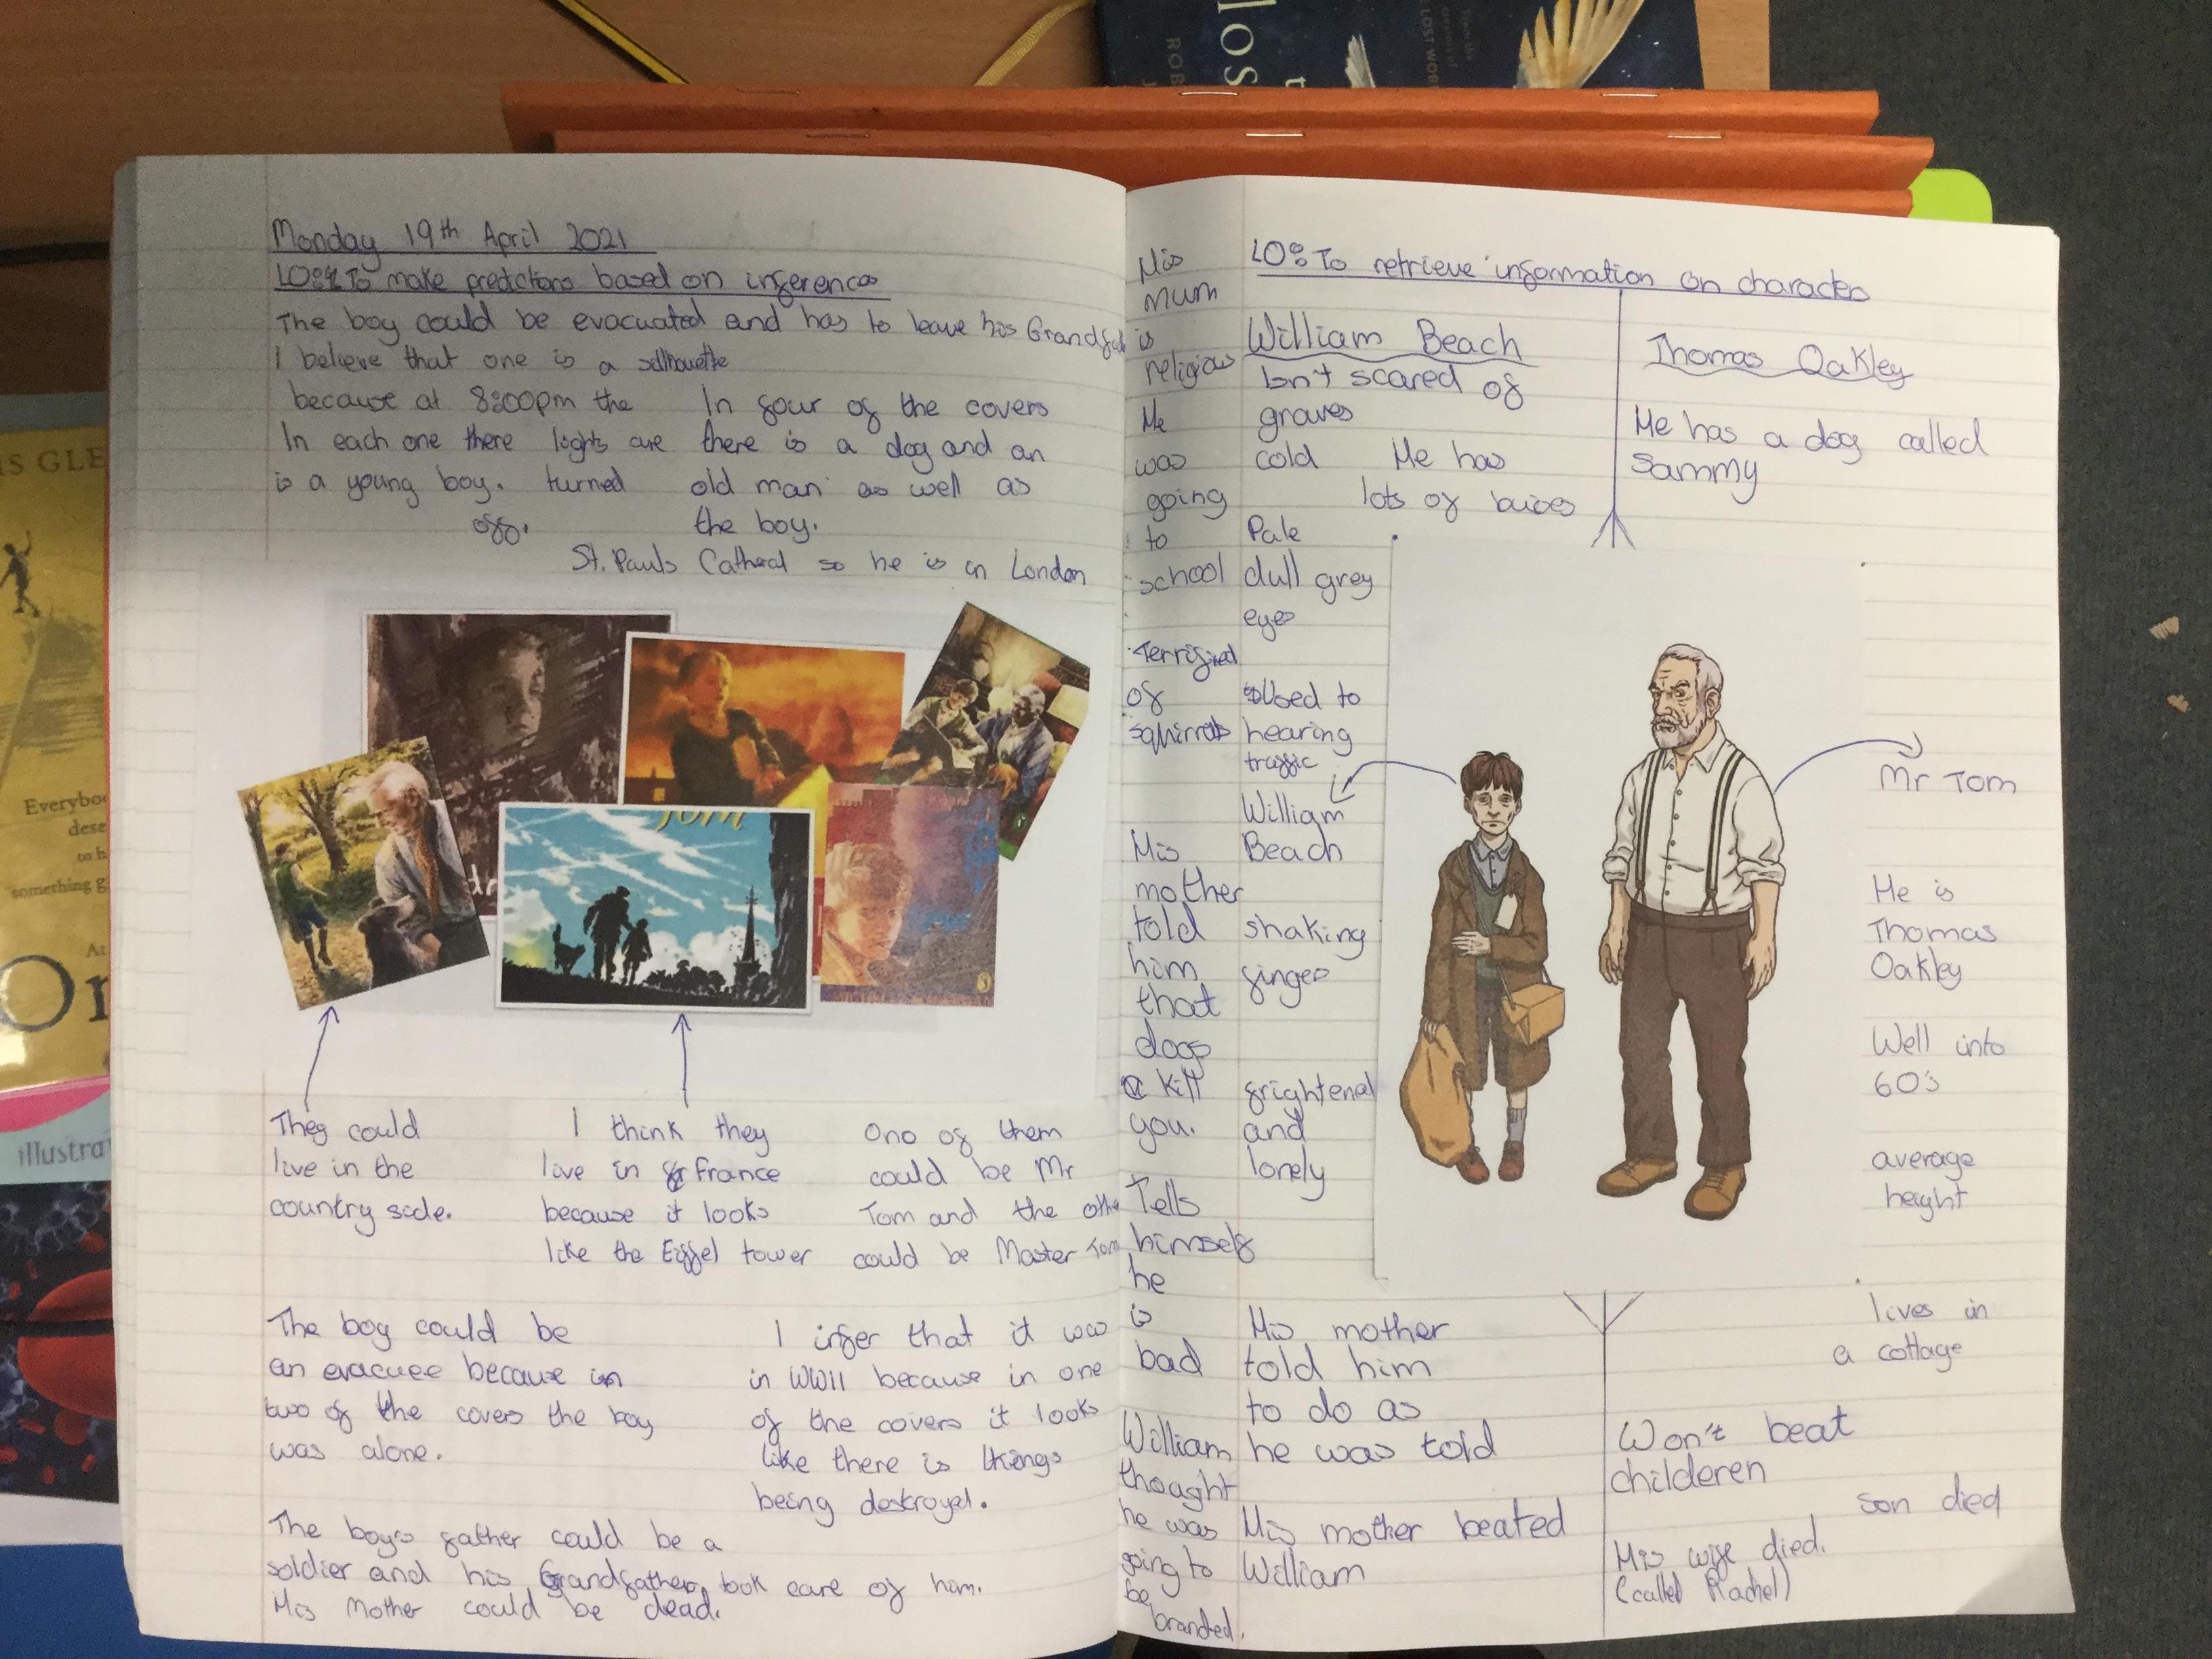 Monday 19th April 2021
LO: To make predctions based on inferences
The boy could be evacuated and has to leave his Grandfath
I believe that one is a sillhouette
because at 8:00pm the
lights are
turned
off.
In each one there
is a young boy.
In four of the covers
there is a dog and an
old man as well as
the boy.
St. Pauls Cathedral so he is in London
Tom
They could
live in the
country side.
I think they
live in France
because it looks
like the Eiffel tower
One of them
could be Mr
Tom and the othe
could be Master Tom
The boy could be
an evacuee because in
two of the covers the boy
was alone.
I infer that it was
in WWII because in one
of the covers it looks
like there is things
being destroyed.
The boys father could be a
soldier and his Grandfather took care of him.
His Mother could be dead.
LO: To retrieve information on characters
His
mum
is
religious
He
was
going
to
school
Terrified
of
squirrels
His
mother
told
him
that
dogs
kill
you.
Tells
himself
he
is
bad
William
thought
he was
going to
be
branded.
William Beach
Isn't scared of
graves
cold
He has
lots of buises
Pale
dull grey
eyes
Used to
hearing
traffic
William
Beach
shaking
finges
frightened
and
lonely
His mother
told him
to do as
he was told
His mother beated
William
Thomas Oakley
He has a dog called
Sammy
Mr Tom
He is
Thomas
Oakley
Well into
60's
average
height
lives in
a cottage
Won't beat
childeren
son died
His wife died.
(called Rachel)
IS GLE
Everybo
dese
to h
something g
At
On
illustra
los
ROB
LOST WOR